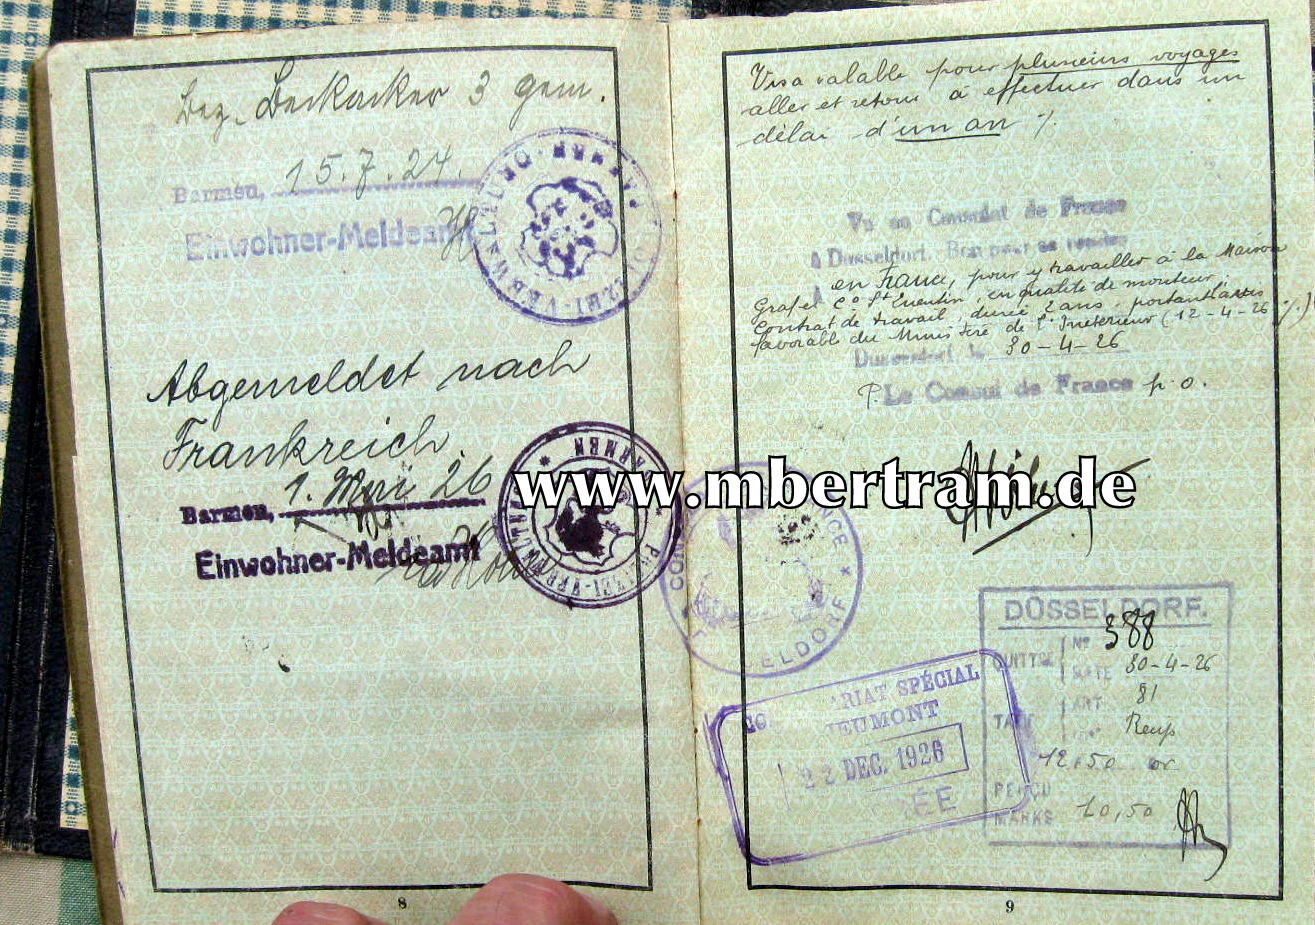 3 gem.
Barmen, 15.7.24.
Einwohner-Meldeamt
Abgemeldet nach
Frankreich.
Barmen, 1. Mai 26
Einwohner-Meldeamt
BARMEN
8
Visa valable pour plusieurs voyages
aller et retour à effectuer dans un
délai d'un an %.
Vu au Consulat de France
à Dusseldorf. Bon pour se rendre
en France, pour y travailler à la Maison
Graf et Cº St Quentin, en qualité de monteur;
Contrat de travail, durée 2 ans, portant avis
favorable du Ministère de l'Intérieur (12-4-26)
Dusseldorf, le 30-4-26
P. Le Consul de France p.o.
www.mbertram.de
DÜSSELDORF.
Nº 388
QUITTCE
DATE 30-4-26
ART 81
TARIF
12,50 or
PERÇU
MARKS 10,50
SPÉCIAL
JEUMONT
22 DEC. 1926
9